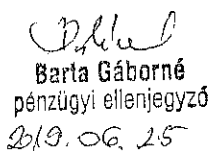 Barta Gáborné
pénzügyi ellenjegyző
2019. 06. 25